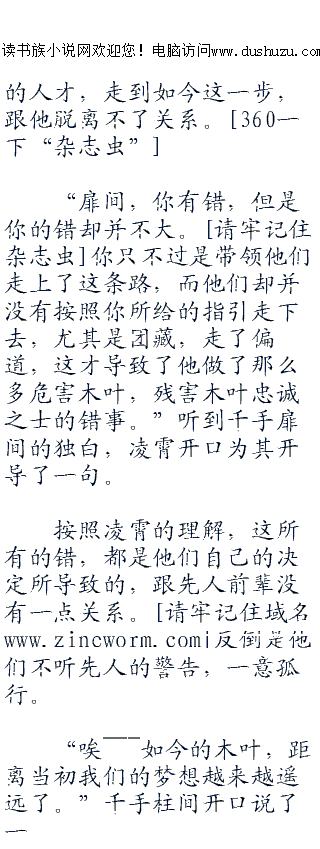 读书族小说网欢迎您！电脑访问www.dushuzu.com
的人才，走到如今这一步，
跟他脱离不了关系。[360一
下“杂志虫”]
“扉间，你有错，但是
你的错却并不大。[请牢记住
杂志虫]你只不过是带领他们
走上了这条路，而他们却并
没有按照你所给的指引走下
去，尤其是团藏，走了偏
道，这才导致了他做了那么
多危害木叶，残害木叶忠诚
之士的错事。”听到千手扉
间的独白，凌霄开口为其开
导了一句。
按照凌霄的理解，这所
有的错，都是他们自己的决
定所导致的，跟先人前辈没
有一点关系。[请牢记住域名
www.zincworm.com|反倒是他
们不听先人的警告，一意孤
行。
“唉———如今的木叶，距
离当初我们的梦想越来越遥
远了。”千手柱间开口说了
一